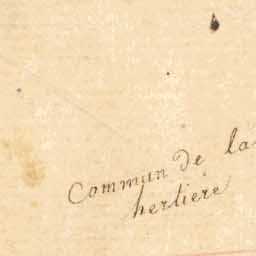 Commun de la
hertiere